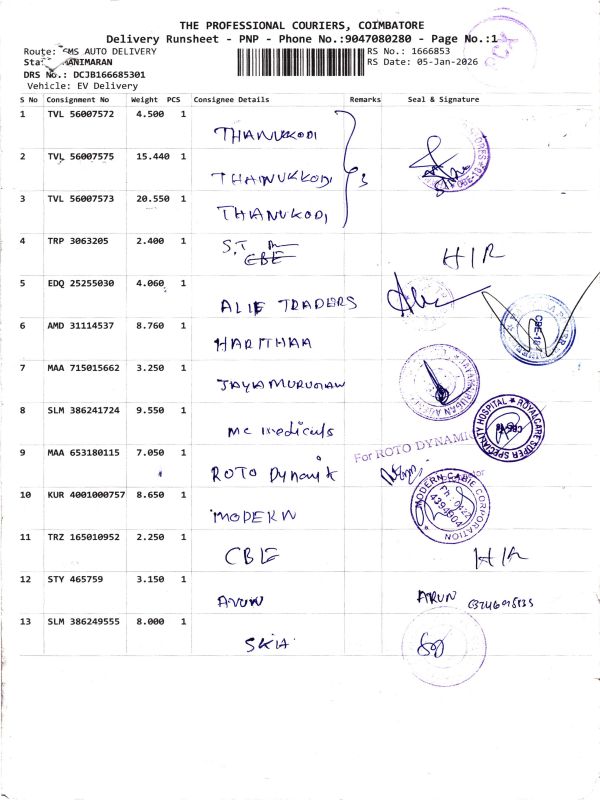 THE PROFESSIONAL COURIERS, COIMBATORE
Delivery Runsheet - PNP - Phone No.:9047080280 - Page No.:1
Route: SMS AUTO DELIVERY
RS No.: 1666853
ANIMARAN
RS Date: 05-Jan-2026
DRS No.: DCJB166685301
Vehicle: EV Delivery
S No Consignment No Weight PCS Consignee Details Remarks Seal & Signature
1 TVL 56007572 4.500 1
THANUKKODI
2 TVL 56007575 15.440 1
THANUKKODI 3
3 TVL 56007573 20.550 1
THANUKODI
4 TRP 3063205 2.400 1
S.T
CBE H/R
5 EDQ 25255030 4.060 1
ALIF TRADERS
6 AMD 31114537 8.760 1
HARITHAA
7 MAA 715015662 3.250 1
JAYAMURUGAN
8 SLM 386241724 9.550 1
ROYALCARE SUPER SPECIALITY HOSPITAL
Mc medicals
9 MAA 653180115 7.050 1
For ROTO DYNAMIC
ROTO Dynamik
10 KUR 4001000757 8.650 1
MODERN CABLE CORPORATION
MODERN
11 TRZ 165010952 2.250 1
CBE H/R
12 STY 465759 3.150 1
ARUN
13 SLM 386249555 8.000 1
SKIA